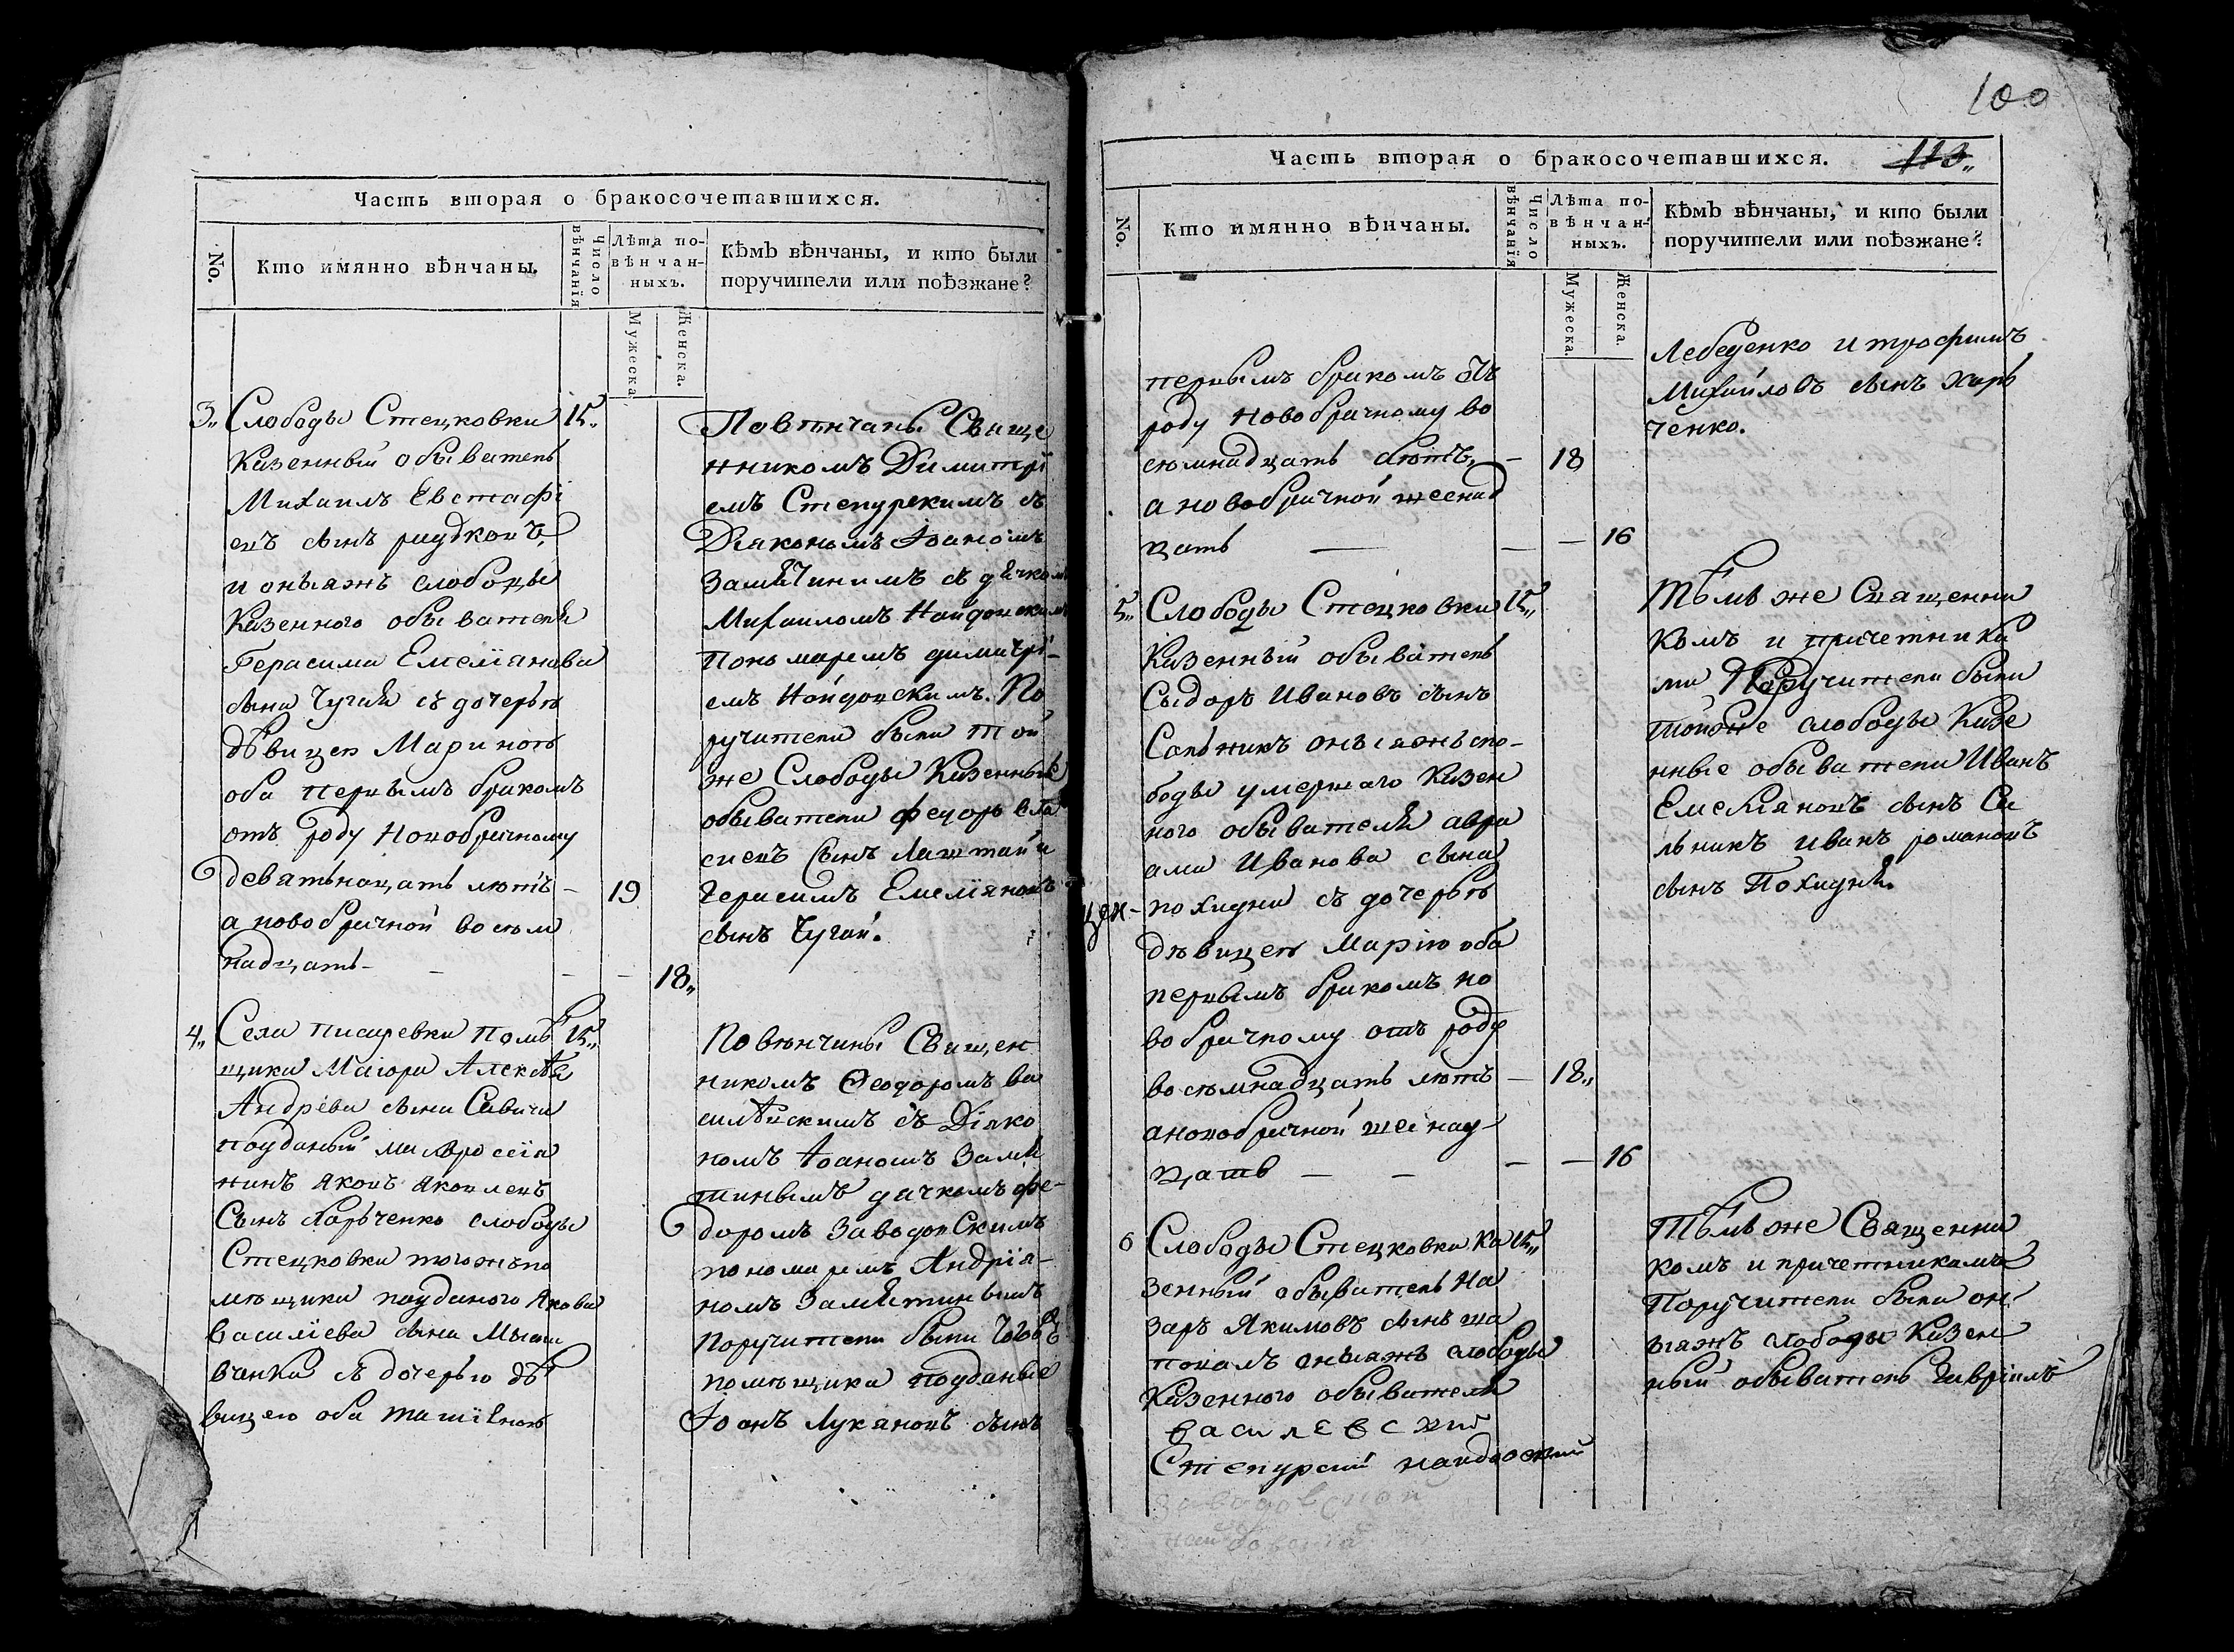 Часть вторая о бракосочетавшихся.
No.
Кто имянно вѣнчаны.
Число вѣнчанія
Лѣта повѣнчанныхъ.
Мужеска.
Женска.
Кѣмъ вѣнчаны, и кто были
поручители или поѣзжане?
3„ Слободы Стецковки 15„
Казенный обыватель
Михаилъ Евстафі
евъ сынъ
и оныяжъ слободы
Казенного обывателя
Герасима Емеліянова
сына Чугая съ дочерью
дѣвицею Мариною
оба первымъ бракомъ
отъ роду новобрачному
девятьнацать лѣтъ – 19
а новобрачной восѣм
надцать – – – – 18„
Повѣнчаны Свяще
нникомъ Димитрі
емъ Степурскимъ съ
Діякономъ Іоаномъ
съ дячкомъ
Михаиломъ Найдовскимъ
Пономаремъ димитрі-
емъ Найдовскимъ. По
ручители были той
же Слободы Казенные
обыватели федоръ Вла
сиевъ Сынъ и
Герасимъ Емеліяновъ
сынъ Чугай.
4„ Села писаревки Помѣ 15„
щика Маіора Алексѣя
Андрѣева сына Савича
подданый малоросіа
нинъ Яковъ Яковлевъ
Сынъ Харьченко слободы
Стецковки тогожъ по
мѣщика подданого Якова
Василіева сына
съ дочерью дѣ
вицею оба
Повѣнчаны Священ
никомъ Феодоромъ Ва
силѣвскимъ съ Діяко
номъ Іоаномъ Замѣ
тинымъ дячкомъ фе-
доромъ Заводовскимъ
пономаремъ Андрія-
номъ Замѣтинымъ
Поручители были тогожъ
помѣщика подданые
Іоанъ Лукяновъ сынъ
100
Часть вторая о бракосочетавшихся. 113„
No.
Кто имянно вѣнчаны.
Число вѣнчанія
Лѣта повѣнчанныхъ.
Мужеска.
Женска.
Кѣмъ вѣнчаны, и кто были
поручители или поѣзжане?
первымъ бракомъ отъ
роду новобрачному во
сѣмнадцать лѣтъ, – 18
а новобрачной шеснад
цать – – – 16
Лебеденко и трофимъ
Михайловъ сынъ Харь
ченко.
5„ Слободы Стецковки 15„
Казенный обыватель
Сыдоръ Ивановъ сынъ
Сальникъ оныяжъ сло-
боды умершаго Казен
ного обывателя авра
ама Иванова сына
съ дочерью
дѣвицею Марію оба
первымъ бракомъ но
вобрачному отъ роду
восѣмнадцать лѣтъ – 18„
а новобрачной шеснад
цать – – – – 16
Тѣмъ же Священни
комъ и причетника
ми Поручители были
тойже слободы Казе
нные обыватели Иванъ
Емельяновъ сынъ Са
льникъ иванъ романовъ
сынъ
6 Слободы Стецковки Ка 15„
зенный обыватель На
заръ Якимовъ сынъ ша
поналъ оныяжъ слободы
Казенного обывателя
василевскій
Степурскій найдовскій
Заводовской
Тѣмъ же Священни
комъ и причетникамы
Поручители были он
ыяжъ слободы Казен
ный обыватель Гавріилъ